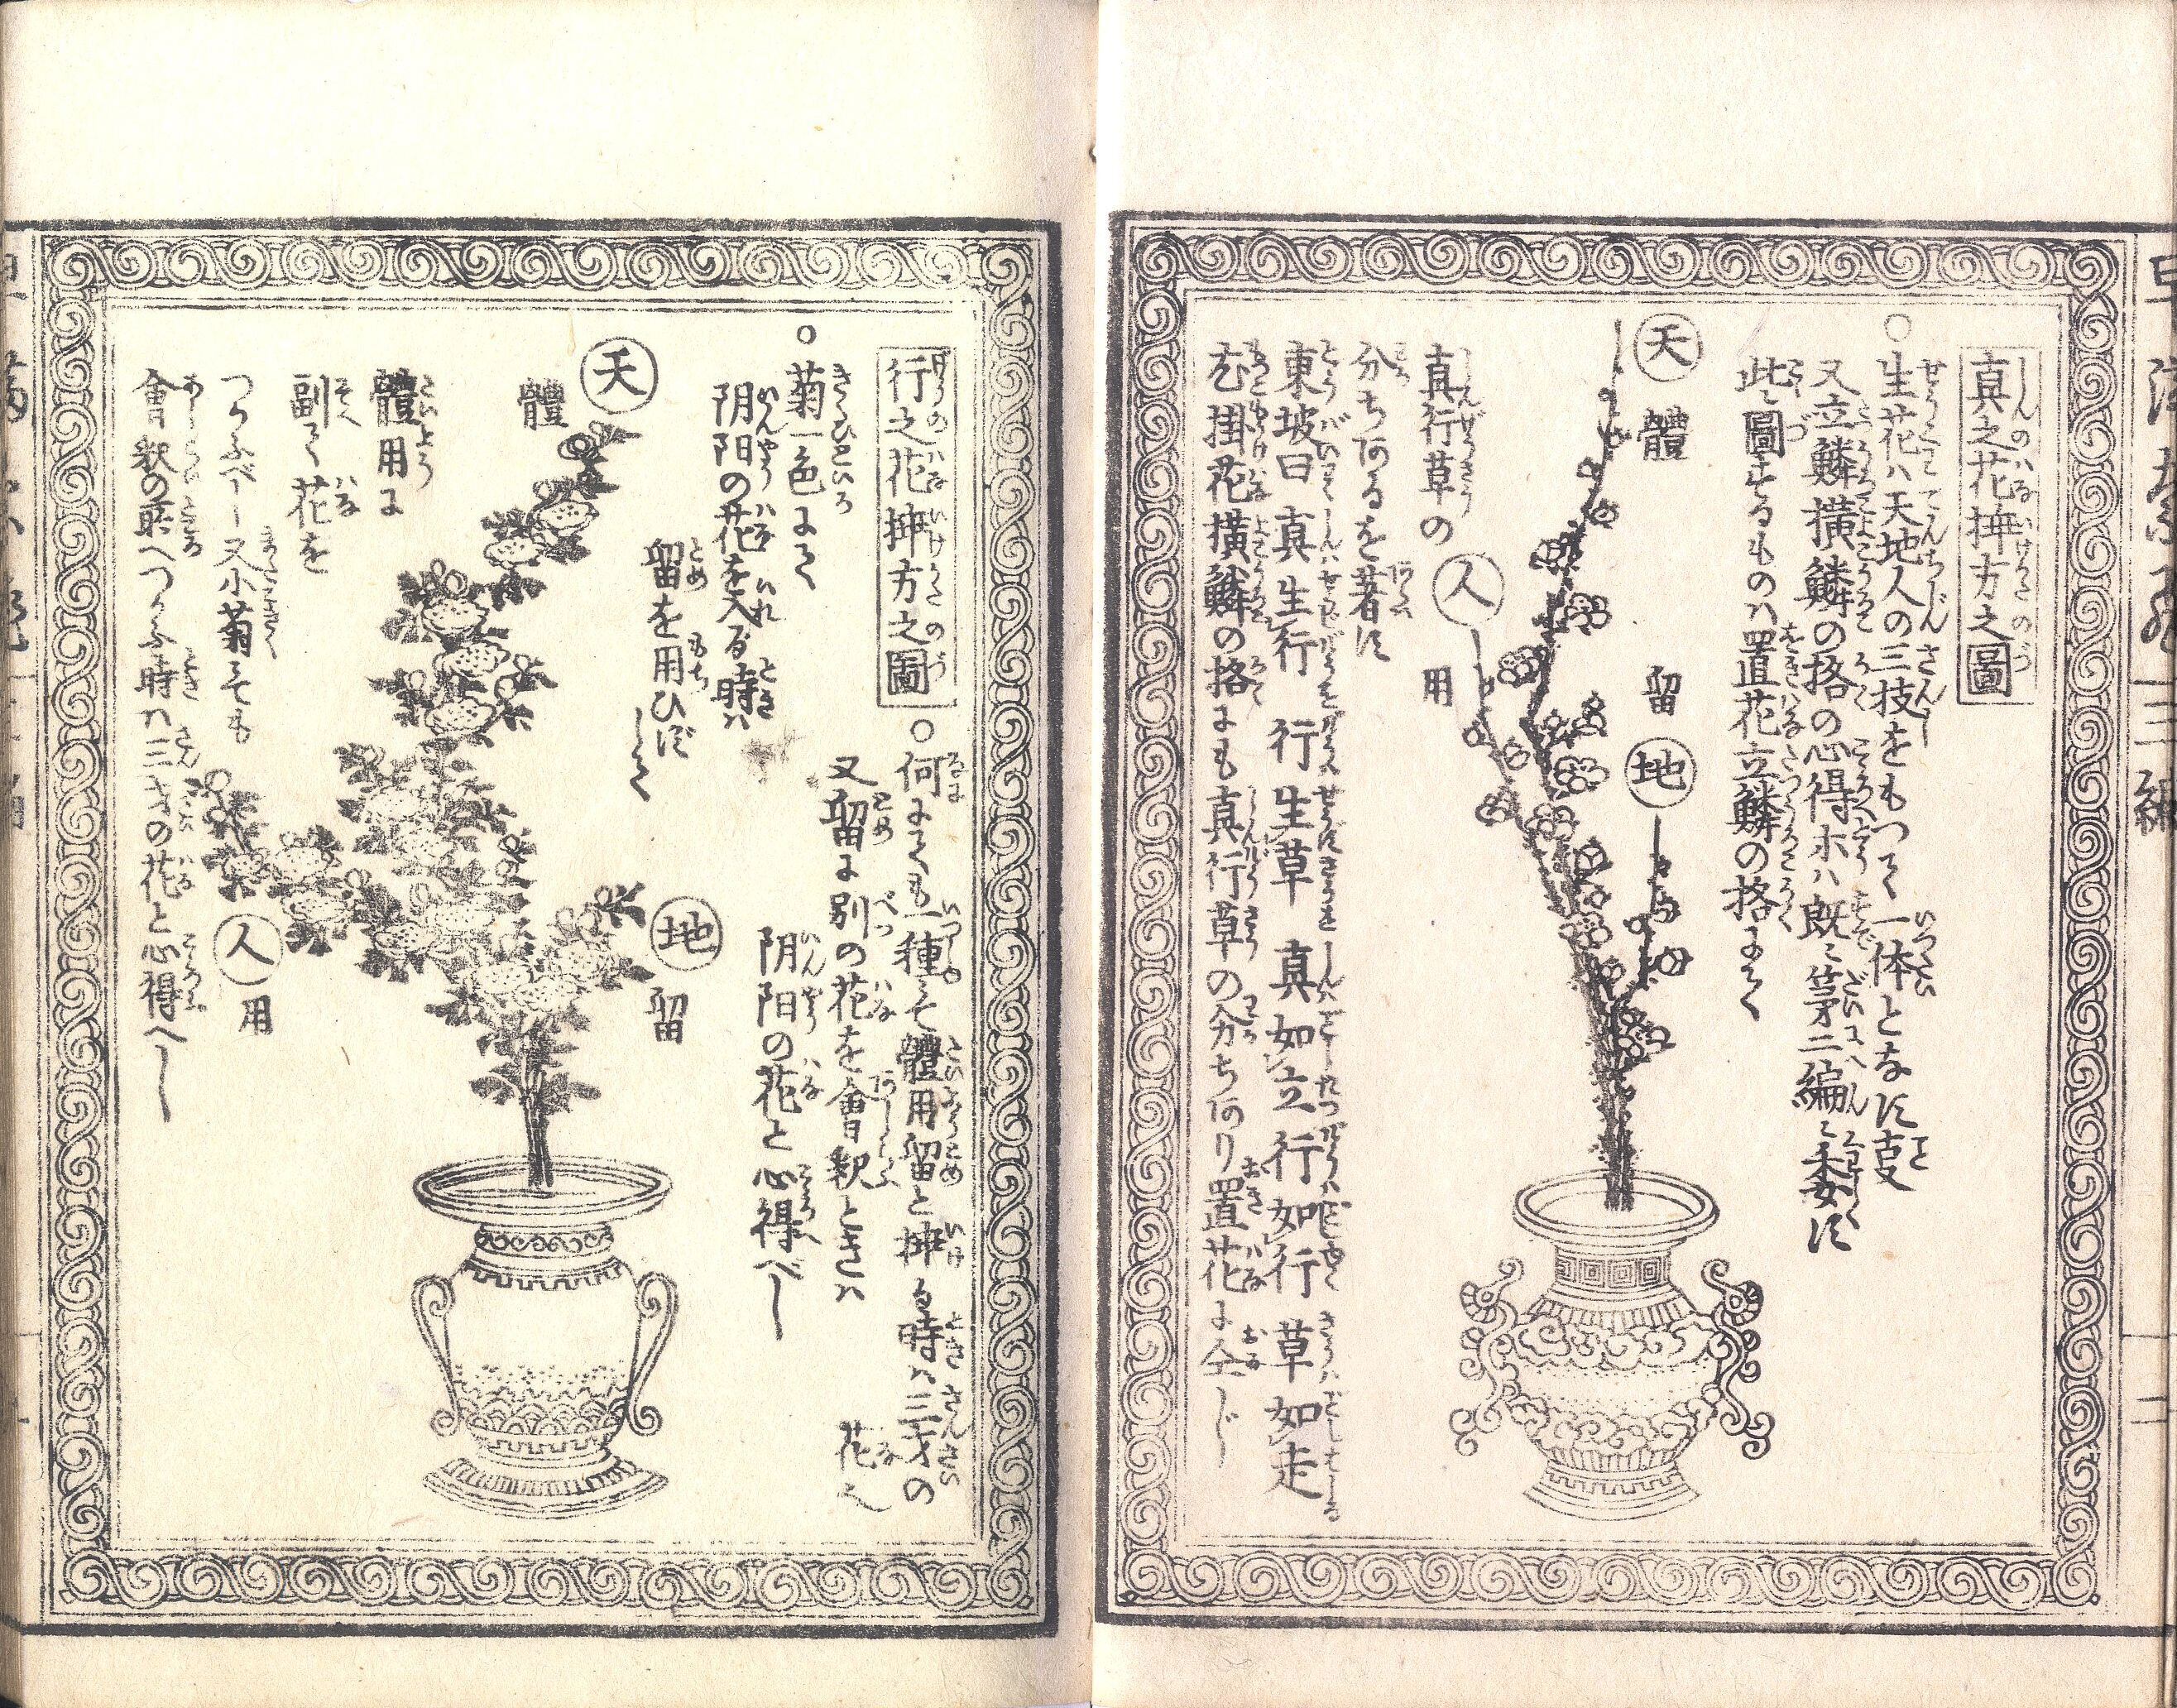 真之花挿方之圖
○生花ハ天地人の三技をもつて一体となす叓
又立鱗横鱗の格の心得ホハ既ニ第二編ニ委す
此圖するものハ置花立鱗の格にて
天
體
留
地
人
用
真行草の
分ちあるを著す
東坡曰真生行行生草真如立行如行草如走
尤掛花横鱗の格にも真行草の分ちあり置花に仝じ
行之花挿方之圖
○何にても一種にて體用留と挿る時ハ三才の
花也
又留に別の花を會釈ときハ
陰陽の花と心得べし
○菊一色にて
陰陽の花を入る時ハ
留を用ひずして
天
體
地
留
體用に
副て花を
つかふべし又小菊にても
會釈の所へつかふ時ハ三才の花と心得へし
人
用
三編